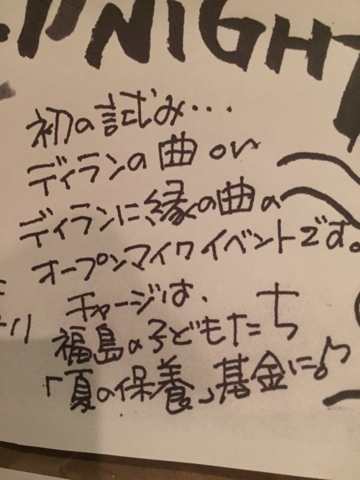 PNIGHT
初の試み…
ディランの曲 or
ディランに縁の曲の
オープンマイクイベントです。
チャージは、
福島の子どもたち
「夏の保養」基金に♪